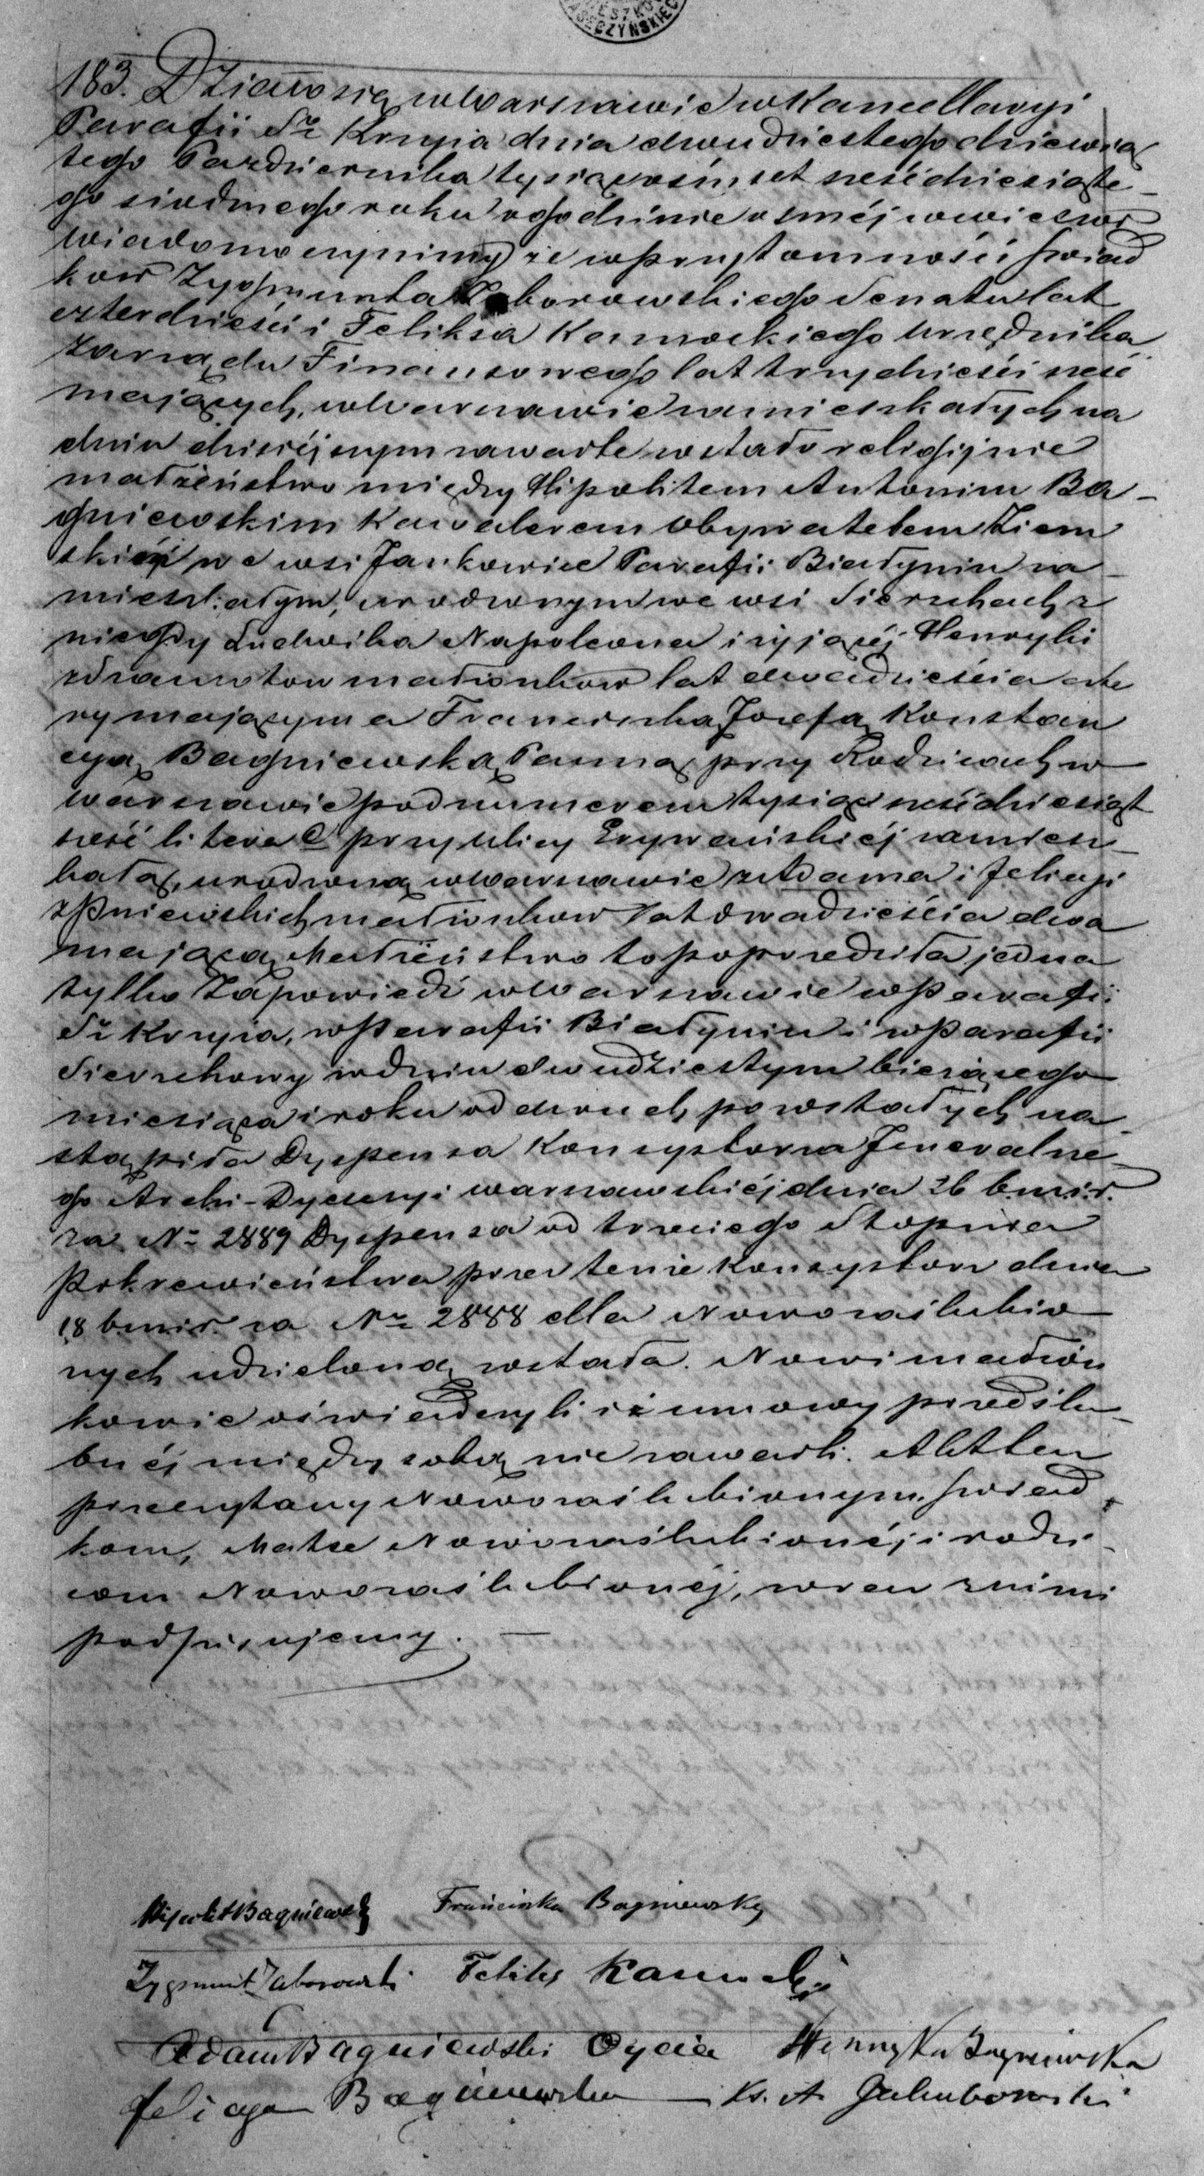 183. Działo się w Warszawie w Kancellaryi
Parafii Sgo Krzyża dnia dwudziestego dziewią
tego Października tysiąc ośmset sześćdziesiąte-
go siódmego roku o godzinie osméj wieczor
Wiadomo czynimy że w przytomności świad
ków Zygmunta Zaborowskiego Senatu lat
czterdzieści i Feliksa Karnockiego Urzędnika
Zarządu Finansowego lat trzydzieści sześć
mających, w Warszawie zamieszkałych na
dniu dzisiéjszym zawarte zostało religijnie
małżeństwo między Hipolitem Antonim Ba-
gniewskim Kawalerem Obywatelem Ziem
skim we wsi Jankowice Parafii Białynin za-
mieszkałym, urodzonym we wsi Sierzchach z
niegdy Ludwika Napoleona i żyjącéj Henryki
małżonków lat dwadzieścia czte
ry mającym a Franciszką Józefą Konstan
cyą Bagniewską Panną przy Rodzicach w
Warszawie pod numerem tysiąc sześćdziesiąt
sześć litera C przy ulicy Erywańskiéj zamiesz-
kałą, urodzoną w Warszawie z Adama i Felicyi
z Pniewskich małżonków lat dwadzieścia dwa
mającą. Małżeństwo to poprzedziła jedna
tylko Zapowiedź w Warszawie w Parafii
Sgo Krzyża, w Parafii Białynin i w Parafii
Sierzchowy w dniu dwudziestym bieżącego
miesiąca i roku od dwuch pozostałych na-
stąpiła Dyspensa Konsystorza Jeneralne-
go Archi-Dyecezyi Warszawskiéj dnia 26 b.m.i r.
za No 2889 Dyspensa od trzeciego Stopnia
Pokrewieństwa przez tenże Konsystorz dnia
18 b.m.i r. za Nr 2888 dla Nowozaślubio
nych udzieloną została. Nowi małżon
kowie oświadczyli iż umowy przedślu-
bnéj między sobą nie zawarli. Akt ten
przeczytany Nowozaślubionym, świad
kom, Matce Nowozaślubionéj i rodzi-
com Nowozaślubionéj, wraz z nimi
podpisujemy. —
Hipolit Bagniewski Franciszka Bagniewska
Zygmunt Zaborowski Feliks Karnocki
Adam Bagniewski Oyciec Henryka Bagniewska
Felicya Bagniewska — Ks. A Jakubowski